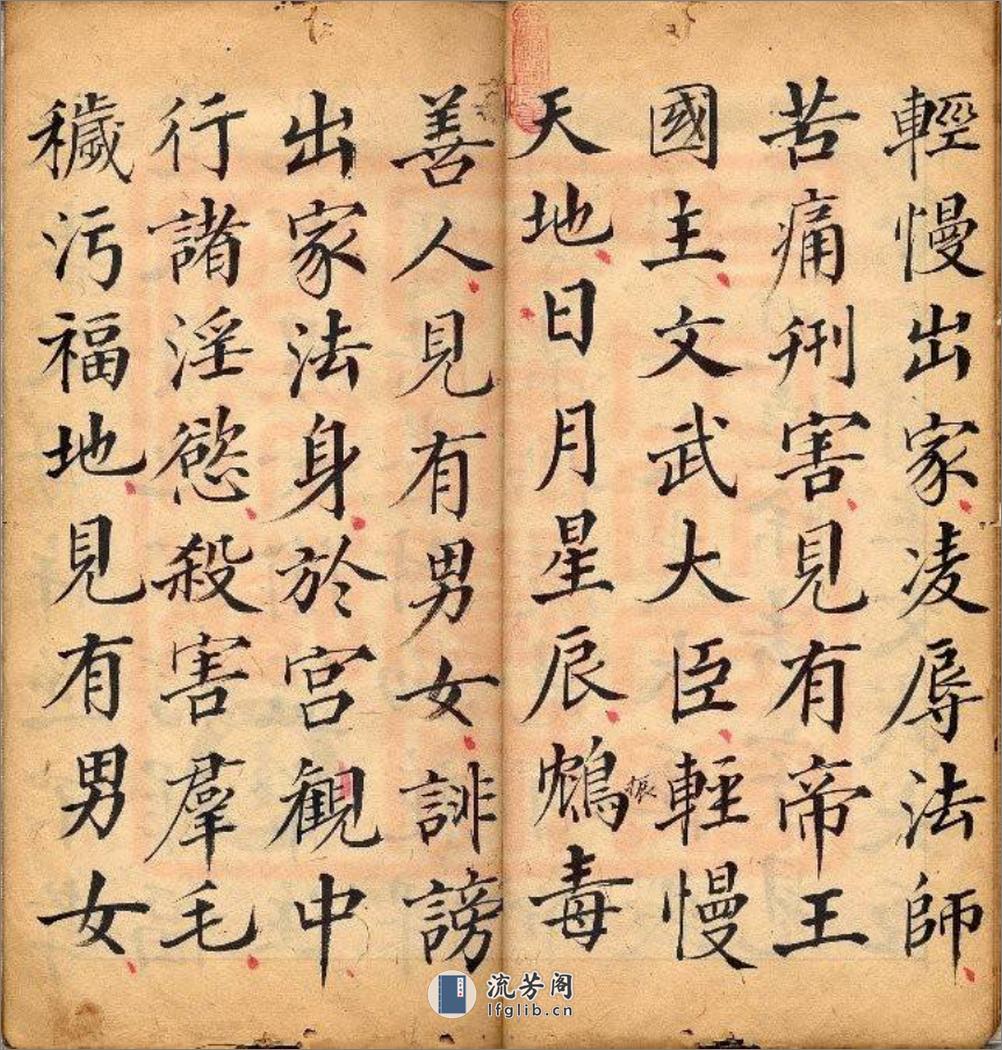 輕慢出家凌辱法師
苦痛刑害見有帝王
國主文武大臣輕慢
天地日月星辰鴆毒
振
善人見有男女誹謗
出家法身於宮觀中
行諸淫慾殺害羣毛
穢污福地見有男女
流芳阁
lfglib.cn